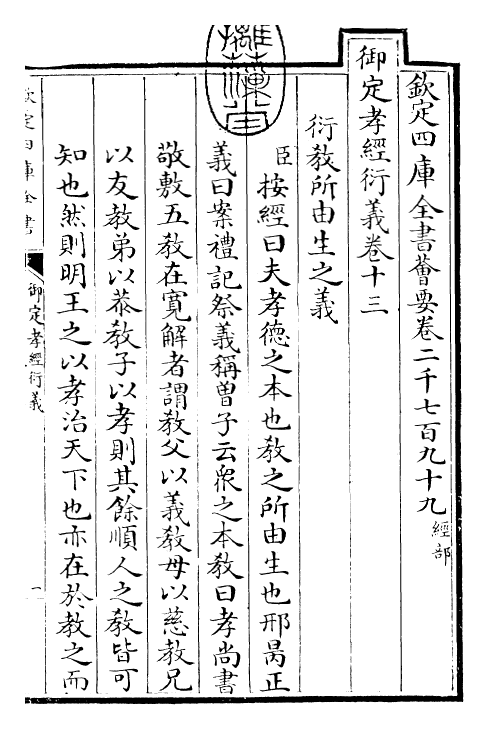 欽定四庫全書薈要卷二千七百九十九 經部
御定孝經衍義卷十三
衍教所由生之義
臣按經曰夫孝德之本也教之所由生也邢昺正
義曰案禮記祭義稱曽子云衆之本教曰孝尚書
敬敷五教在寛解者謂教父以義教母以慈教兄
以友教弟以恭教子以孝則其餘順人之教皆可
知也然則明王之以孝治天下也亦在於教之而
欽定四庫全書
御定孝經衍義
一